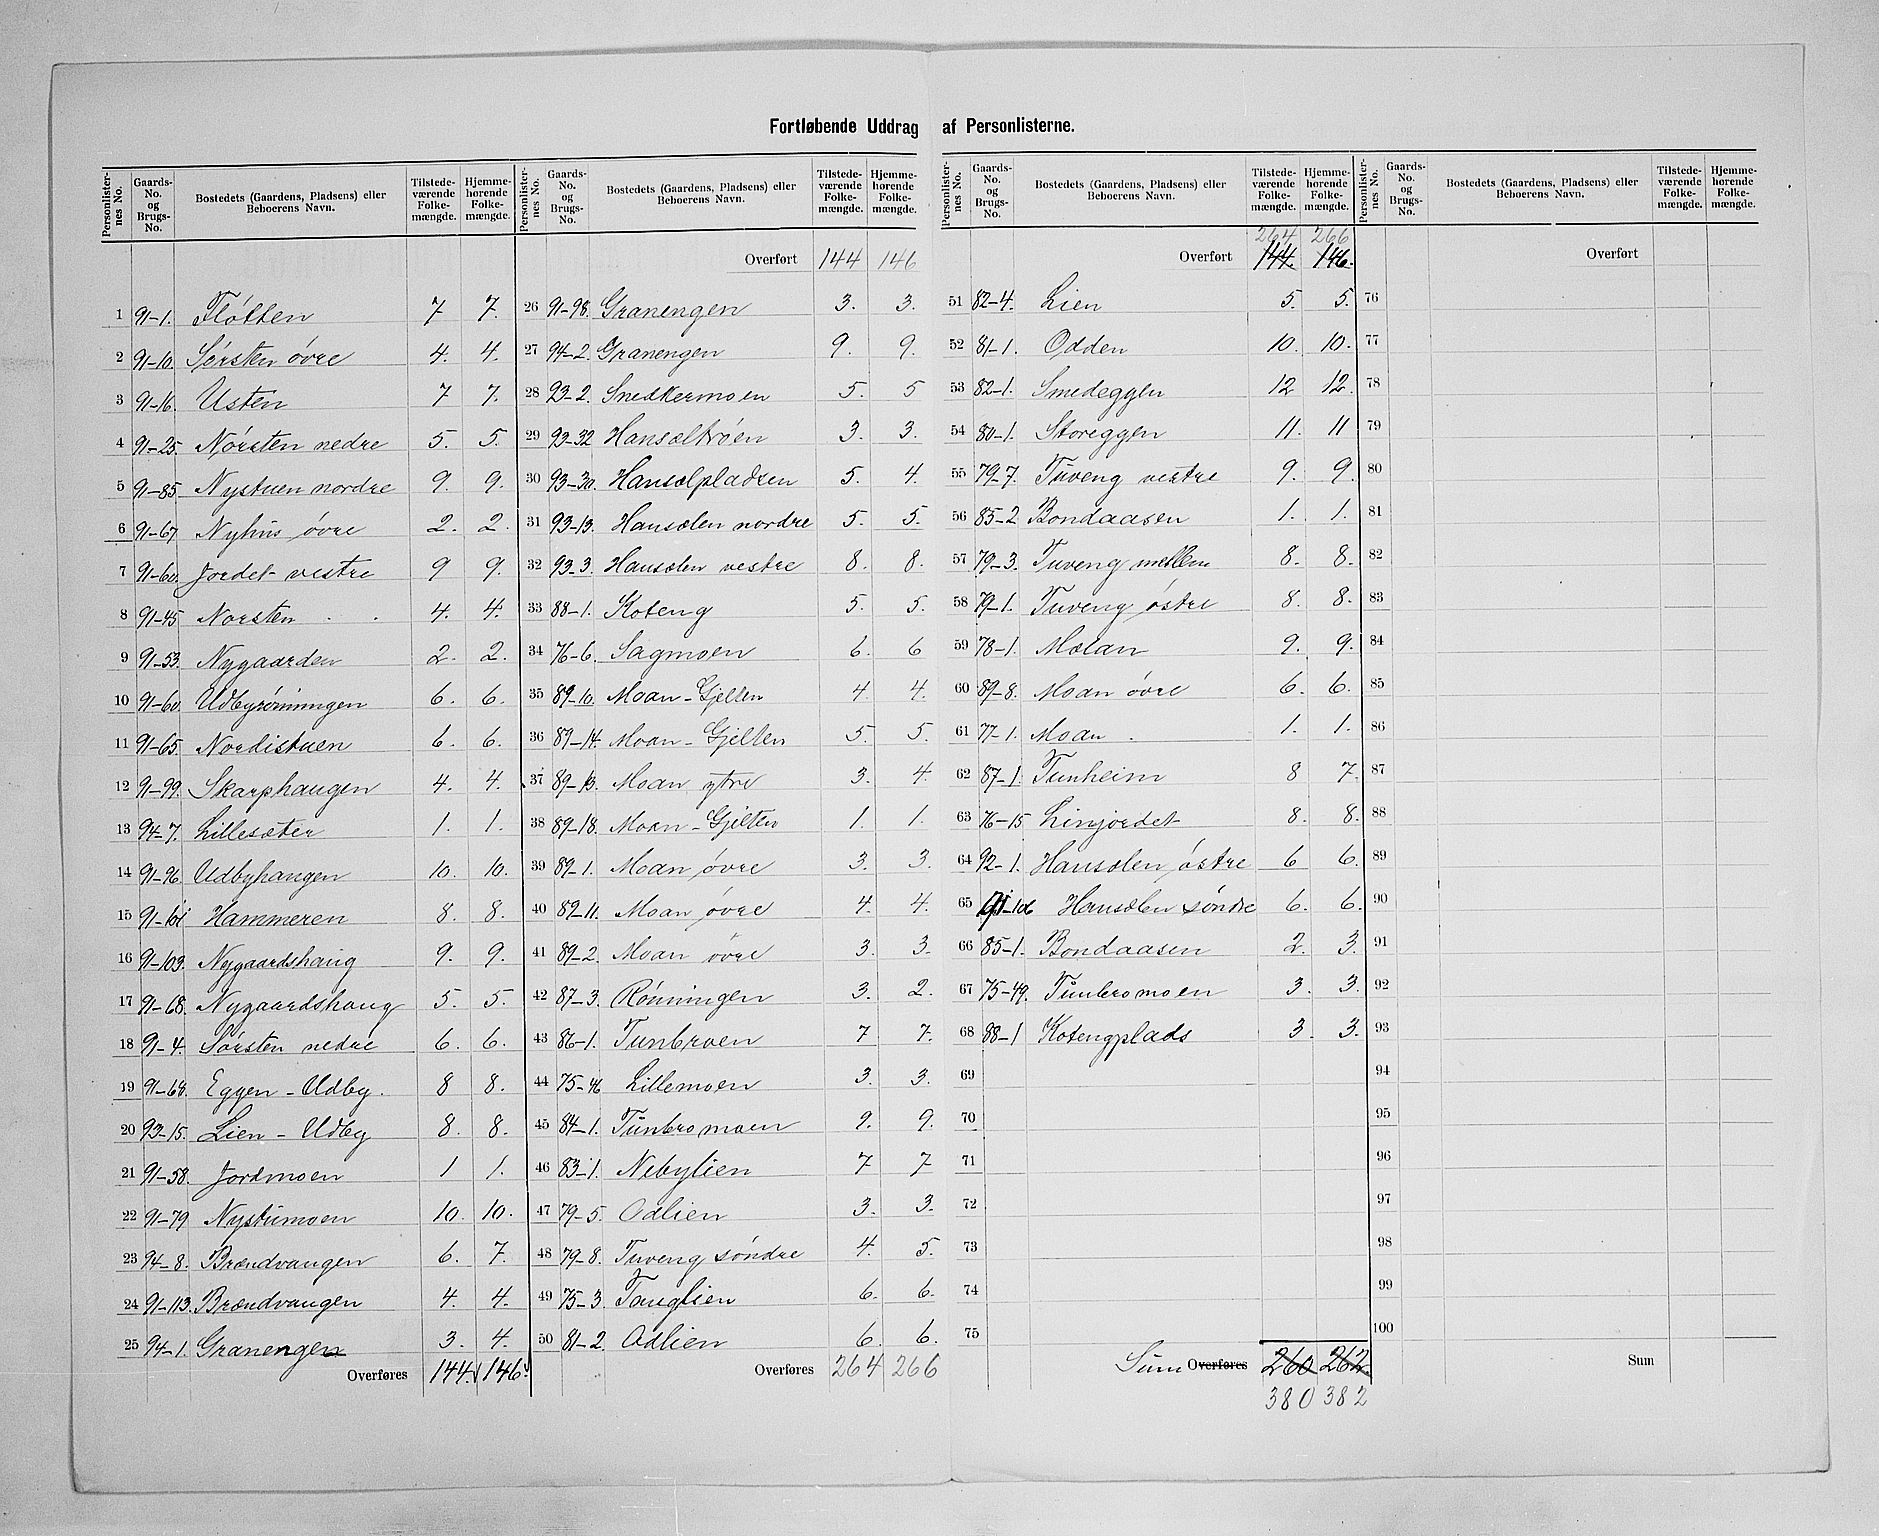 Fortløbende Uddrag af Personlisterne.
Personlister-nes No. | Gaards-No. og Brugs-No. | Bostedets (Gaardens, Pladsens) eller Beboerens Navn. | Tilstede-værende Folke-mængde. | Hjemme-hørende Folke-mængde.
1 91-1. Fløtten 7 7.
2 91-10. Sørsten øvre 4. 4.
3 91-16. Usten 7 7.
4 91-25. Nørsten nedre 5. 5.
5 91-85. Nystuen nordre 9. 9.
6 91-67. Nyhus øvre 2. 2.
7 91-60. Jordet vestre 9 9.
8 91-45 Norsten 4. 4.
9 91-53. Nygaarden 2. 2.
10 91-60. Udbyrønningen 6. 6.
11 91-65. Nordistuen 6. 6.
12 91-99. Skarphaugen 4. 4.
13 94-7. Lillesæter 1. 1.
14 91-96. Udbyhaugen 10. 10.
15 91-101 Hammeren 8. 8.
16 91-103. Nygaardshaug 9. 9.
17 91-68. Nygaardshaug 5. 5.
18 91-4. Sørsten nedre 6. 6.
19 91-68. Eggen - Udby. 8 8.
20 93-15. Lien - Udby 8. 8.
21 91-58. Jordmoen 1 1.
22 91-79 Nystumoen 10. 10.
23 94-8. Brændvangen 6. 7.
24 91-113. Brændvangen 4. 4.
25 94-1. Granengen 3. 4.
Overføres 144. 146.
Personlister-nes No. | Gaards-No. og Brugs-No. | Bostedets (Gaardens, Pladsens) eller Beboerens Navn. | Tilstede-værende Folke-mængde. | Hjemme-hørende Folke-mængde.
Overført 144 146
26 91-98. Granengen 3. 3.
27 94-2. Granengen 9. 9.
28 93-2. Snedkermoen 5. 5
29 93-32 Hansæltrøen 3. 3.
30 93-30. Hansælpladsen 5. 4.
31 93-13. Hansælen nordre 5. 5.
32 93-3. Hansælen vestre 8. 8.
33 88-1. Koteng 5. 5.
34 76-6. Sagmoen 6. 6
35 89-10. Moan - Gjelten 4 4.
36 89-14. Moan - Gjelten 5. 5.
37 89-13. Moan ytre 3. 4.
38 89-18. Moan - Gjelten 1. 1.
39 89-1. Moan øvre 3. 3.
40 89-11. Moan øvre 4. 4.
41 89-2. Moan øvre 3. 3.
42 87-3. Rønningen 3. 2.
43 86-1. Tunbroen 7 7.
44 75-46 Lillemoen 3. 3.
45 84-1. Tunbromoen 9. 9.
46 83-1. Nebylien 7 7
47 79-5. Odlien 3. 3.
48 79-8. Tuveng søndre 4. 5.
49 75-3. Tauglien 6. 6.
50 81-2. Odlien 6. 6.
Overføres 264 266
Personlister-nes No. | Gaards-No. og Brugs-No. | Bostedets (Gaardens, Pladsens) eller Beboerens Navn. | Tilstede-værende Folke-mængde. | Hjemme-hørende Folke-mængde.
264 266
Overført 144. 146.
51 82-4. Lien 5. 5.
52 81-1. Odden 10. 10.
53 82-1. Smedeggen 12 12.
54 80-1. Storeggen 11. 11
55 79-7. Tuveng vestre 9. 9.
56 85-2 Bondaasen 1. 1.
57 79-3. Tuveng mellem 8. 8.
58 79-1. Tuveng østre 8. 8.
59 78-1. Mælan 9. 9.
60 89-8. Moan øvre 6. 6.
61 77-1. Moan 1. 1.
62 87-1. Tunheim 8 7.
63 76-15 Linjordet 8. 8.
64 92-1. Hansælen østre 6 6.
65 91-106 Hansælen søndre 6. 6.
66 85-1. Bondaasen 2. 3.
67 75-49. Tunbromoen 3. 3.
68 88-1 Kotengplads 3. 3.
69
70
71
72
73
74
75
Sum Overføres 260 262.
380 382
Personlister-nes No. | Gaards-No. og Brugs-No. | Bostedets (Gaardens, Pladsens) eller Beboerens Navn. | Tilstede-værende Folke-mængde. | Hjemme-hørende Folke-mængde.
Overført
76
77
78
79
80
81
82
83
84
85
86
87
88
89
90
91
92
93
94
95
96
97
98
99
100
Sum